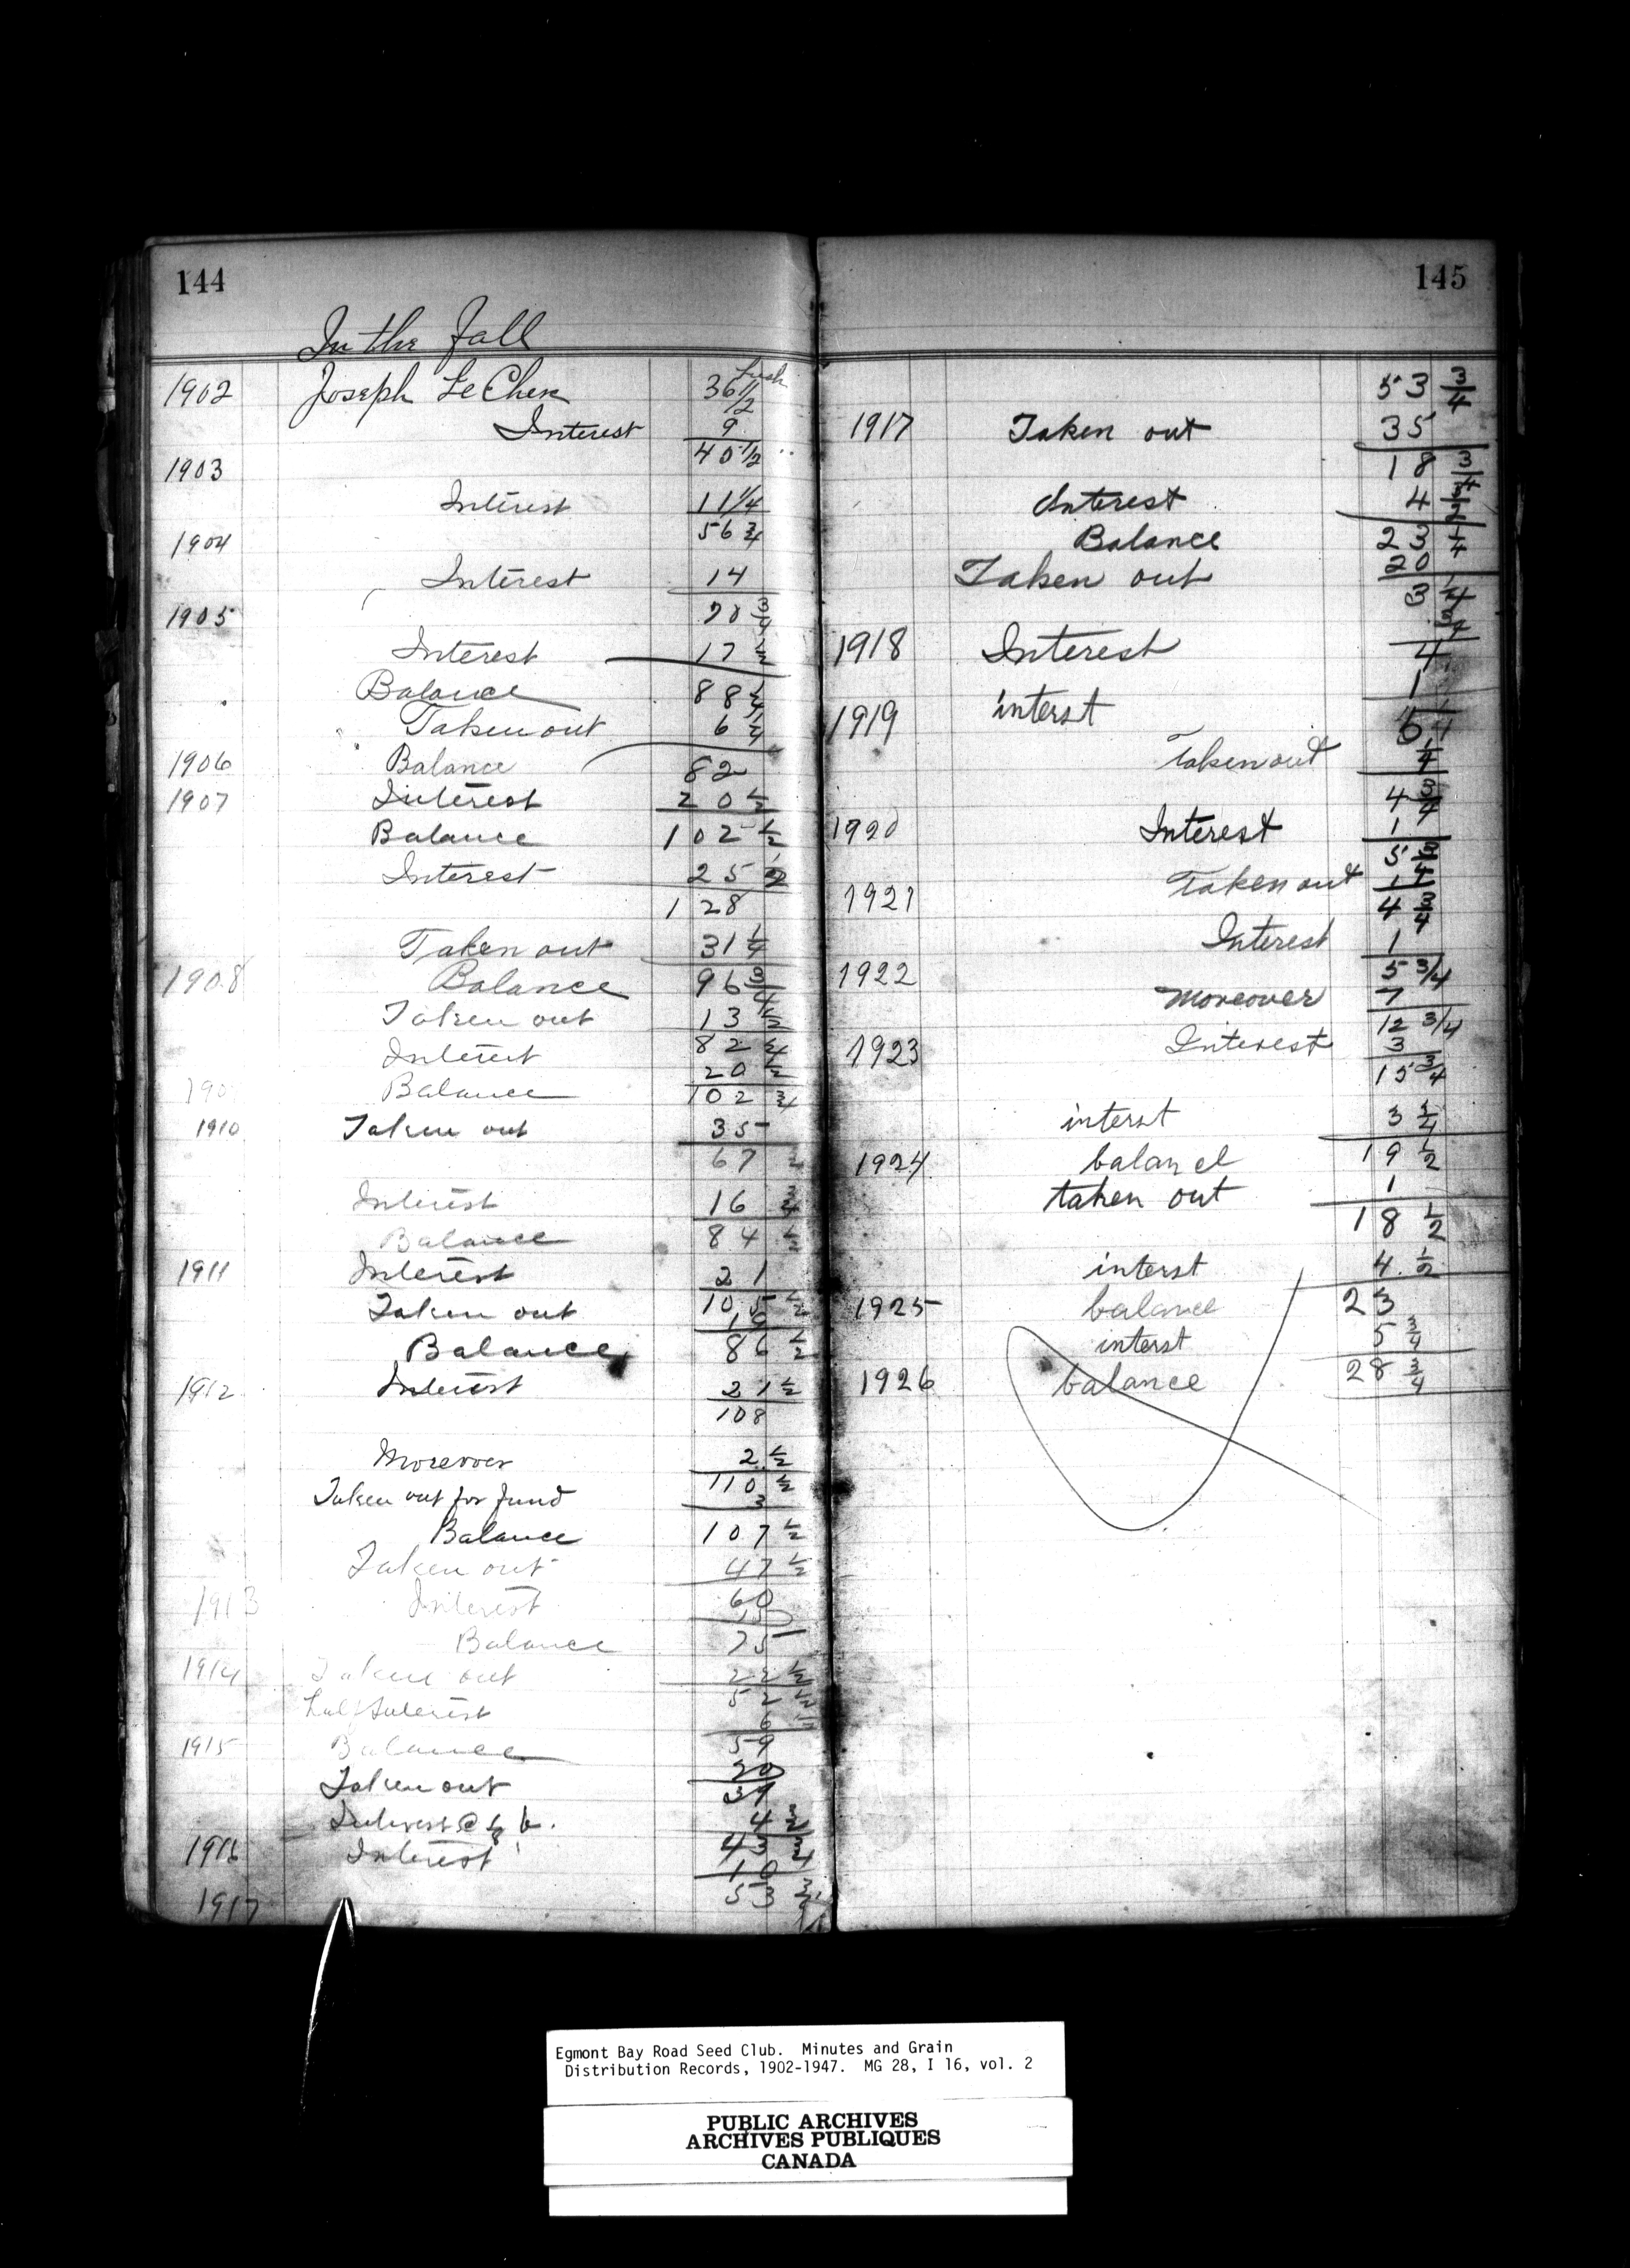 144
In the Fall
1902 Joseph Le Cher 36 1/2 bush
Interest 9
1903 45 1/2
Interest 11 1/4
1904 56 3/4
Interest 14
1905 70 3/4
Interest 17 1/2
Balance 88 1/4
Taken out 6 1/4
1906 Balance 82
1907 Interest 20 1/2
Balance 102 1/2
Interest 25 1/2
128
Taken out 31 1/4
1908 Balance 96 3/4
Taken out 13 1/2
Interest 82 3/4
20 1/2
Balance 102 3/4
1910 Taken out 35
67 1/2
Interest 16 3/4
Balance 84 1/2
1911 Interest 21
Taken out 105 1/2
19
Balance 86 1/2
1912 Interest 21 1/2
108
Moreover 2 1/2
Taken out for fund 110 1/2
3
Balance 107 1/2
Taken out 47 1/2
1913 Interest 60
15
Balance 75
1914 Taken out 22 1/2
52 1/2
half Interest 6 1/2
1915 Balance 59
20
Taken out 39
Interest @ 4 3/4
1916 Interest 43 3/4
10
1917 53 3/4
145
53 3/4
1917 Taken out 35
18 3/4
Interest 4 1/2
Balance 23 1/4
Taken out 20
3 1/4
3/4
1918 Interest 4
1
1919 interst 5
Taken out 1/4
4 3/4
1920 Interest 1
5 3/4
Taken out 1
1921 4 3/4
Interest 1
1922 5 3/4
Moreover 7
12 3/4
1923 Interest 3
15 3/4
interst 3 3/4
1924 balancl 19 1/2
taken out 1
18 1/2
interst 4 1/2
1925 balance 23
interst 5 3/4
1926 balance 28 3/4
Egmont Bay Road Seed Club. Minutes and Grain
Distribution Records, 1902-1947. MG 28, I 16, vol. 2
PUBLIC ARCHIVES
ARCHIVES PUBLIQUES
CANADA